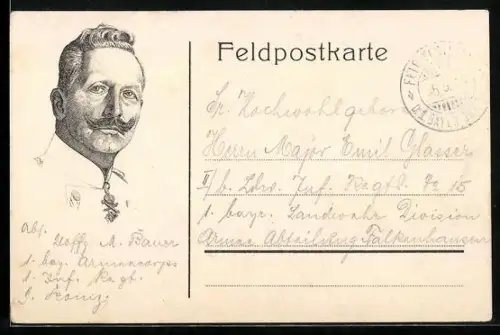 Feldpostkarte
Sr. Hochwohlgeboren
Herrn Major Emil Glasser
II/b. Ldw. Inf. Regtl. No 15
1. bayr. Landwehr Division
Armee Abteilung Falkenhausen
Abs.
M. Bauer
1. bay. Armeecorps
1. Inf. Regt.